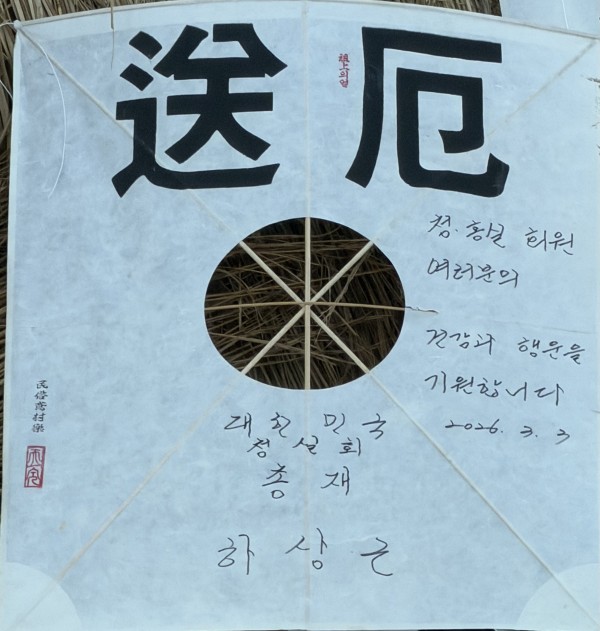 送厄
祖上의얼
청·홍실 회원
여러분의
건강과 행운을
기원합니다
2026. 3. 3
대한민국
청실회
총재
하상근
民俗鳶村